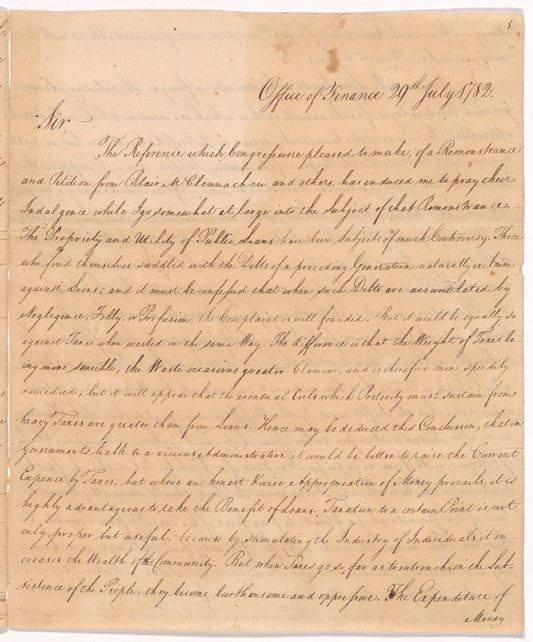 5
Office of Finance 29th July 1782.
Sir,
The Reference which Congress were pleased to make, of a Remonstrance
and Petition from Blair McClennachan and others, has induced me to pray their
Indulgence while I go somewhat at large into the Subject of that Remonstrance.
The Propriety and Utility of Public Loans have been Subjects of much Controversy. Those
who find themselves saddled with the Debts of a preceding Generation naturally exclaim
against Loans; and it must be confessed that when such Debts are accumulated by
Negligence, Folly, or Profusion, the Complaint is well founded. But it would be equally so
against Taxes when wasted in the same Way. The difference is that the Weight of Taxes be
ing more sensible, the Waste occasions greater Clamour, and is therefore more speedily
remedied; but it will appear that the eventual Evils which Posterity must sustain from
heavy Taxes are greater than from Loans. Hence may be deduced this Conclusion, that in
Governments liable to a vicious Administration it would be better to raise the Current
Expence by Taxes; but where an honest & wise Appropriation of Money prevails, it is
highly advantageous to take the Benefit of Loans. Taxation to a certain Point is not
only proper but useful, because by stimulating the Industry of Individuals it en
creases the Wealth of the Community. But when Taxes go so far as to entrench on the Sub
sistence of the People, they become burthensome and oppressive. The Expenditure of
Money